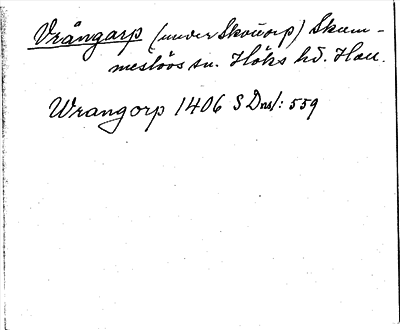 Vrångarp (under Skottorp) Skum-
meslövs sn. Höks hd. Hall.
Wrangorp 1406 SDns1: 559